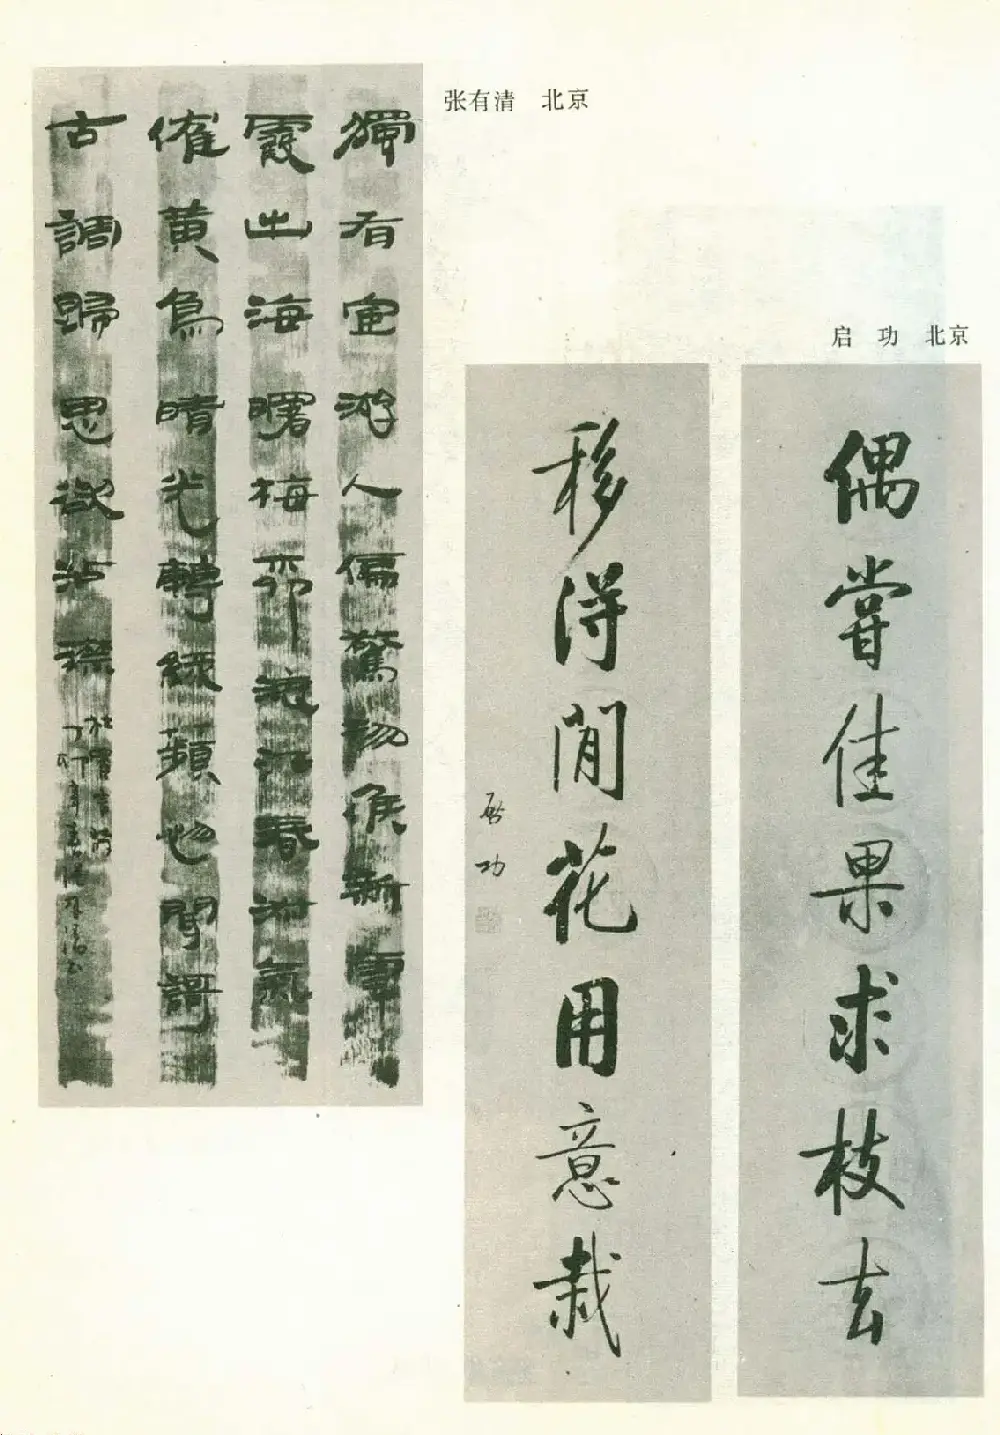 张有清 北京
獨有宦游人偏驚物候新雲
霞出海曙梅柳渡江春淑氣
催黄鳥晴光轉緑蘋忽聞謌
古調歸思欲沾襟
杜審言詩
启 功 北京
偶嘗佳果求枝去
移得閒花用意栽
啟功